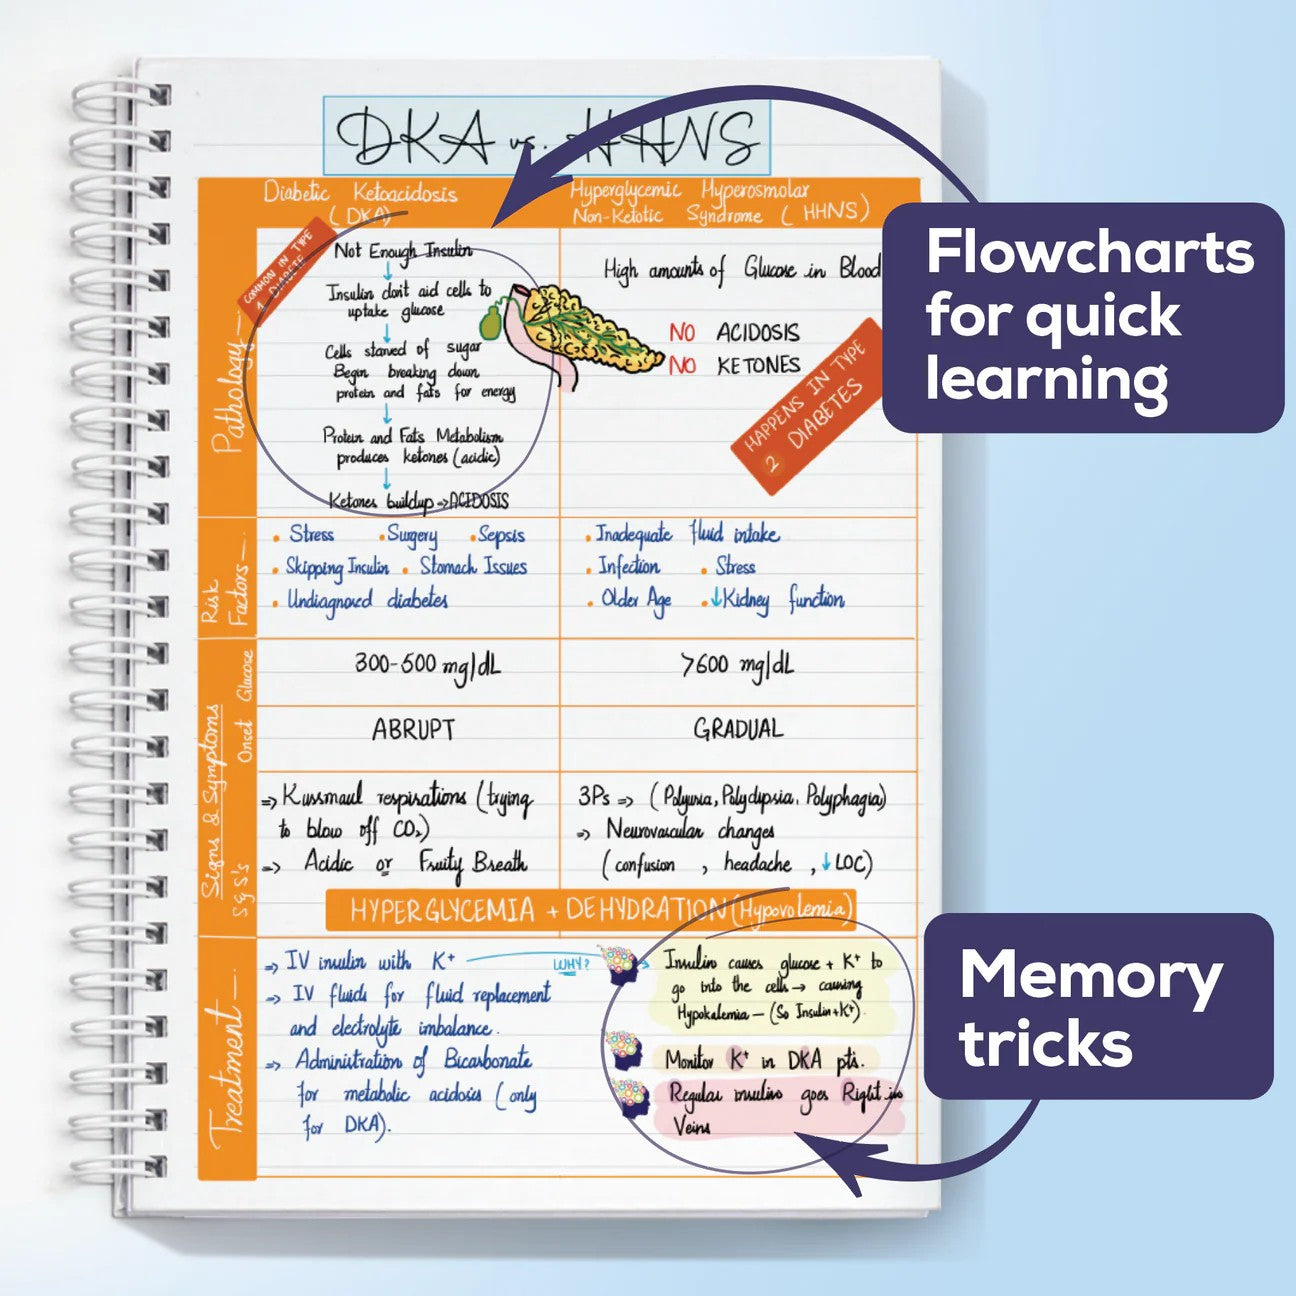 DKA vs. HHNS
Diabetic Ketoacidosis
(DKA)
Hyperglycemic Hyperosmolar
Non-Ketotic Syndrome (HHNS)
Pathology
COMMON IN TYPE
1 DIABETE
Not Enough Insulin
Insulin don't aid cells to
uptake glucose
Cells starved of sugar
Begin breaking down
protein and fats for energy
Protein and Fats Metabolism
produces ketones (acidic)
Ketones buildup => ACIDOSIS
High amounts of Glucose in Blood
NO ACIDOSIS
NO KETONES
HAPPENS IN TYPE
2 DIABETES
Risk
Factors
• Stress • Surgery • Sepsis
• Skipping Insulin • Stomach Issues
• Undiagnosed diabetes
• Inadequate fluid intake
• Infection • Stress
• Older Age • ↓Kidney function
Signs & Symptoms
Glucose
300-500 mg/dL
>600 mg/dL
Onset
ABRUPT
GRADUAL
S & S's
=> Kussmaul respirations (trying
to blow off CO₂)
=> Acidic or Fruity Breath
3Ps => (Polyuria, Polydipsia, Polyphagia)
=> Neurovascular changes
(confusion, headache, ↓LOC)
HYPERGLYCEMIA + DEHYDRATION (Hypovolemia)
Treatment
=> IV insulin with K+
=> IV fluids for fluid replacement
and electrolyte imbalance.
=> Administration of Bicarbonate
for metabolic acidosis (only
for DKA).
WHY?
Insulin causes glucose + K+ to
go into the cells → causing
Hypokalemia – (So Insulin+K+).
Monitor K+ in DKA pts.
Regular insulin goes Right in
Veins
Flowcharts
for quick
learning
Memory
tricks